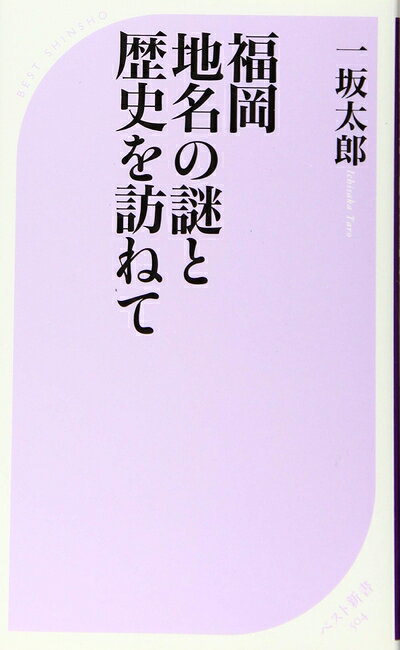 BEST SHINSHO
一坂太郎
Ichisaka Taro
福岡
地名の謎と
歴史を訪ねて
ベスト新書
504